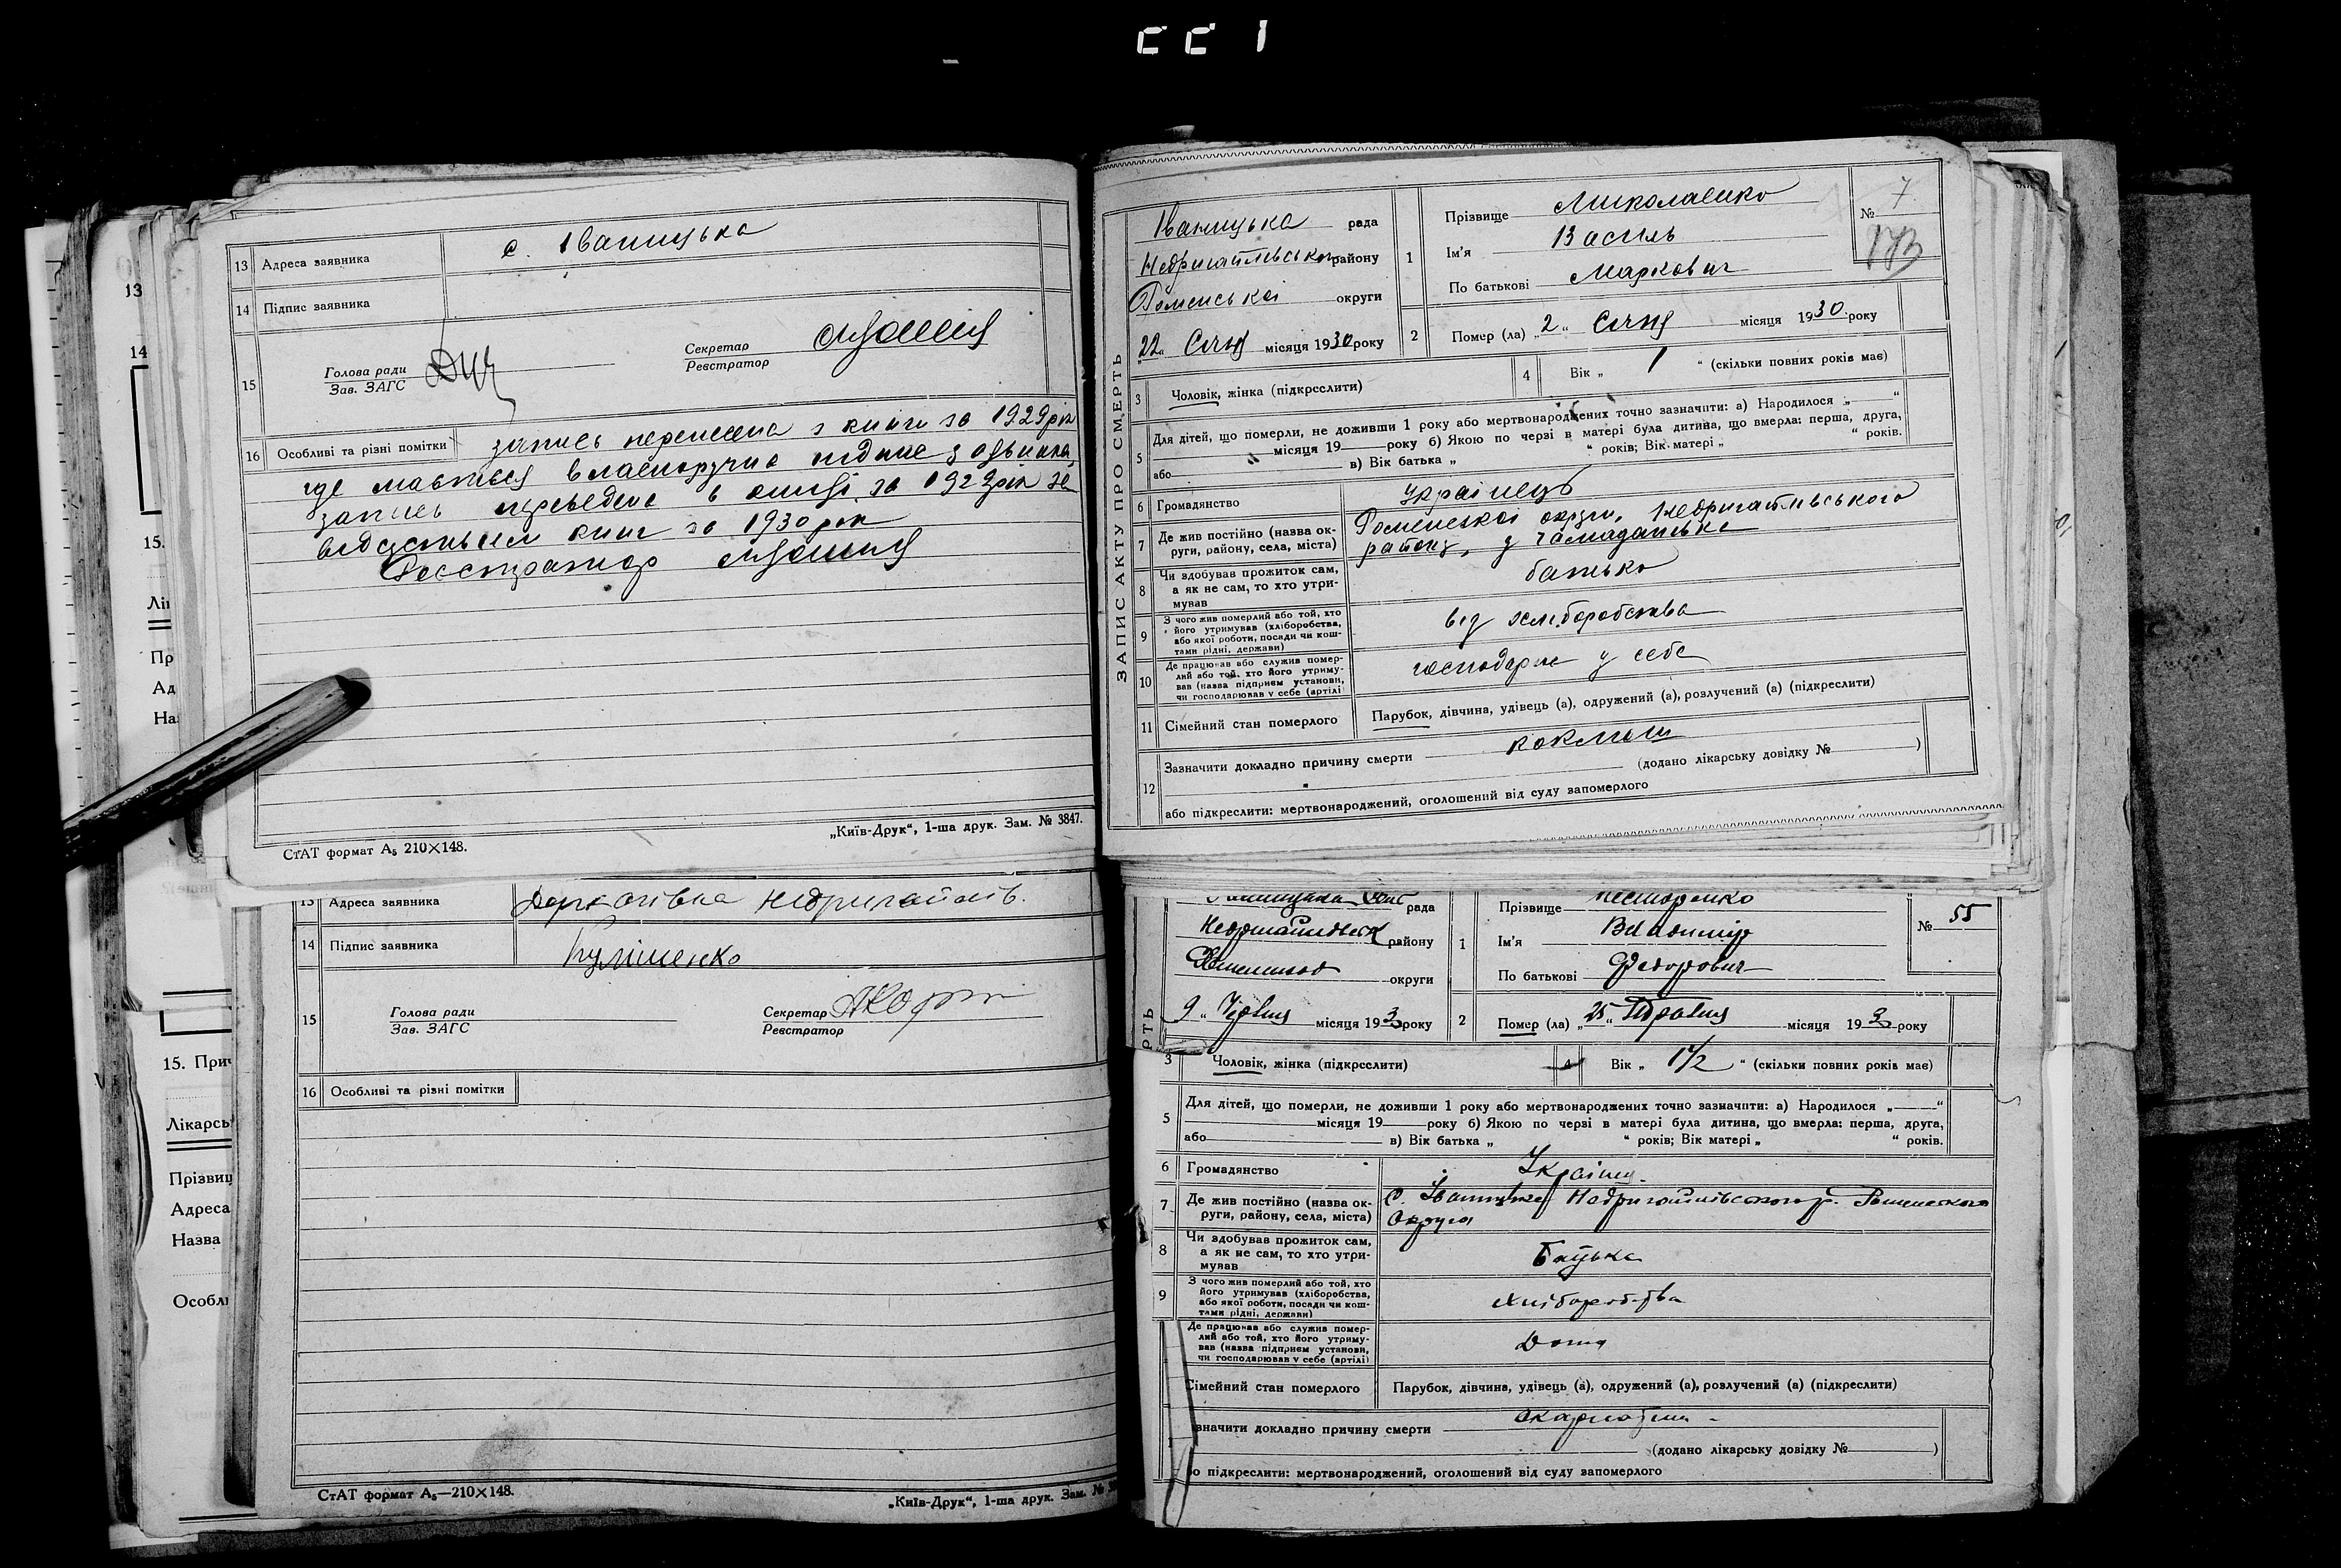 13 Адреса заявника с. Іваницька
14 Підпис заявника
15 Голова ради
Зав. ЗАГС
Секретар
Реєстратор
16 Особливі та різні помітки запись перенесена з книги за 1929 рік
где мається власноручно підпис заявника,
запись переведена в книзі за 1929 рік за
відсутнієм книг за 1930 рік
Реєстратор
„Київ-Друк“, 1-ша друк. Зам. № 3847.
СтАТ формат А5 210×148.
13 Адреса заявника Недригайлів.
14 Підпис заявника Куліщенко
15 Голова ради
Зав. ЗАГС
Секретар
Реєстратор
16 Особливі та різні помітки
СтАТ формат А5—210×148.
„Київ-Друк“, 1-ша друк. Зам. №
13
14
15.
Лі
Пр
Ад
На
15. Прич
Лікарсь
Прізвищ
Адреса
Назва
Особл
ЗАПИС АКТУ ПРО СМЕРТЬ
Іваницька рада
Недригайлівського району
Роменської округи
„22“ Січня місяця 1930 року
1 Прізвище Миколаенко
Ім'я Василь
По батькові Маркович
№ 7
173
2 Помер (ла) „2“ Січня місяця 1930 року
3 Чоловік, жінка (підкреслити)
4 Вік „ 1 “ (скільки повних років має)
5 Для дітей, що померли, не доживши 1 року або мертвонароджених точно зазначити: а) Народилося „ “
місяця 19 року б) Якою по черзі в матері була дитина, що вмерла: перша, друга,
або в) Вік батька „ “ років; Вік матері „ “ років.
6 Громадянство Українець
7 Де жив постійно (назва округи, району, села, міста) Роменської округи, Недригайлівського
району,
8 Чи здобував прожиток сам, а як не сам, то хто утримував батько
9 З чого жив померлий або той, хто його утримував (хліборобства, або якої роботи, посади чи коштами рідні, держави) від хліборобства
10 Де працював або служив померлий або той, хто його утримував (назва підприєм установи, чи господарював у себе (артілі) господарює у себе
11 Сімейний стан померлого Парубок, дівчина, удівець (а), одружений (а), розлучений (а) (підкреслити)
12 Зазначити докладно причину смерти коклюш
(додано лікарську довідку № )
або підкреслити: мертвонароджений, оголошений від суду запомерлого
РТЬ
рада
району
округи
9 „ Червня місяця 193 року
1 Прізвище Несторенко
Ім'я Владимір
По батькові Федорович
№ 55
2 Помер (ла) „25“ Травня місяця 193 року
3 Чоловік, жінка (підкреслити)
4 Вік „ 1½ “ (скільки повних років має)
5 Для дітей, що померли, не доживши 1 року або мертвонароджених точно зазначити: а) Народилося „ “
місяця 19 року б) Якою по черзі в матері була дитина, що вмерла: перша, друга,
або в) Вік батька „ “ років; Вік матері „ “ років.
6 Громадянство
7 Де жив постійно (назва округи, району, села, міста) с. Іваницька Недригайлівського р. Роменского
Округа
8 Чи здобував прожиток сам, а як не сам, то хто утримував Батька
9 З чого жив померлий або той, хто його утримував (хліборобства, або якої роботи, посади чи коштами рідні, держави) Хліборобства
Де працював або служив померлий або той, хто його утримував (назва підприєм установи, чи господарював у себе (артілі) Дома
Сімейний стан померлого Парубок, дівчина, удівець (а), одружений (а), розлучений (а) (підкреслити)
значити докладно причину смерти
(додано лікарську довідку № )
о підкреслити: мертвонароджений, оголошений від суду запомерлого